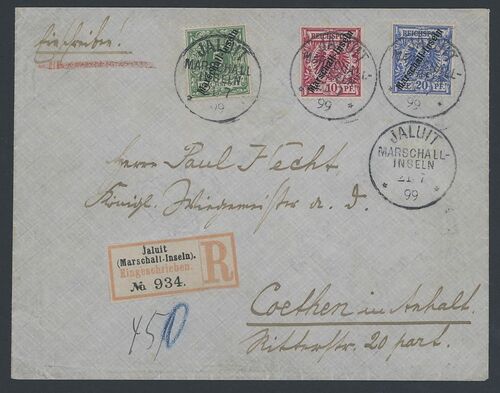 Einschreiben!
JALUIT
MARSCHALL-
INSELN
99
Marschall-Inseln
REICHSPOST
Marschall-Inseln
10 PF
99
Marschall-Inseln
20 PF
99
JALUIT
MARSCHALL-
INSELN
21 7
99
Herrn Paul Hecht
Königl. Wiegemeister a. D.
Jaluit
(Marschall-Inseln).
Eingeschrieben.
№ 934.
R
450
Coethen in Anhalt.
Ritterstr. 20 part.